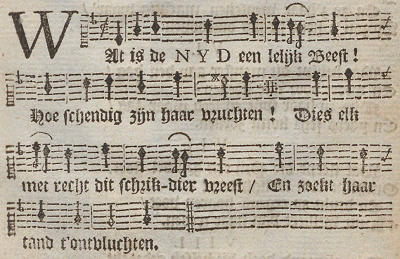 WAt is de NYD een lelijk Beest!
Hoe schendig zijn haar vruchten! Dies elk
met recht dit schrik-dier vreest / En zoekt haar
tand t'ontvluchten.